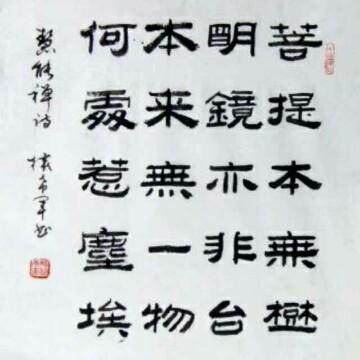 菩提本無樹
明鏡亦非台
本来無一物
何處惹塵埃
慧能禪诗